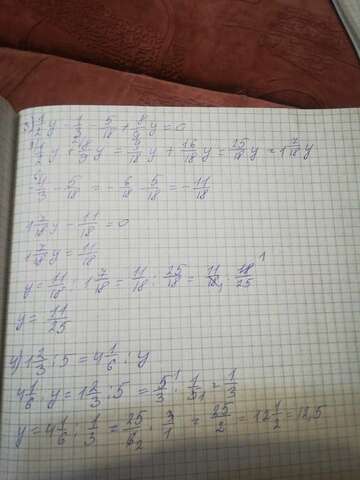 3) 1/2 y - 1/3 - 5/18 + 8/9 y = 0
1/2 y + 8/9 y = 9/18 y + 16/18 y = 25/18 y = 1 7/18 y
- 1/3 - 5/18 = - 6/18 - 5/18 = - 11/18
1 7/18 y - 11/18 = 0
1 7/18 y = 11/18
y = 11/18 : 1 7/18 = 11/18 : 25/18 = 11/18 · 18/25
y = 11/25
4) 1 2/3 : 5 = 4 1/6 : y
4 1/6 : y = 1 2/3 : 5 = 5/3 · 1/5 = 1/3
y = 4 1/6 : 1/3 = 25/6 · 3/1 = 25/2 = 12 1/2 = 12,5